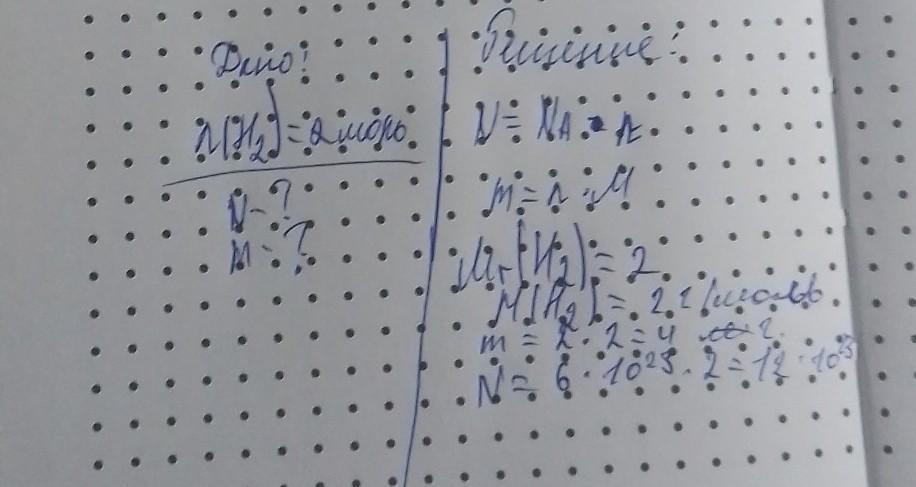 Дано:
n(H₂) = 2 моль
N - ?
m - ?
Решение:
N = NA • n
m = n · M
Mr(H₂) = 2
M(H₂) = 2 г/моль
m = 2 · 2 = 4 г.
N = 6 · 10²³ · 2 = 12 · 10²³